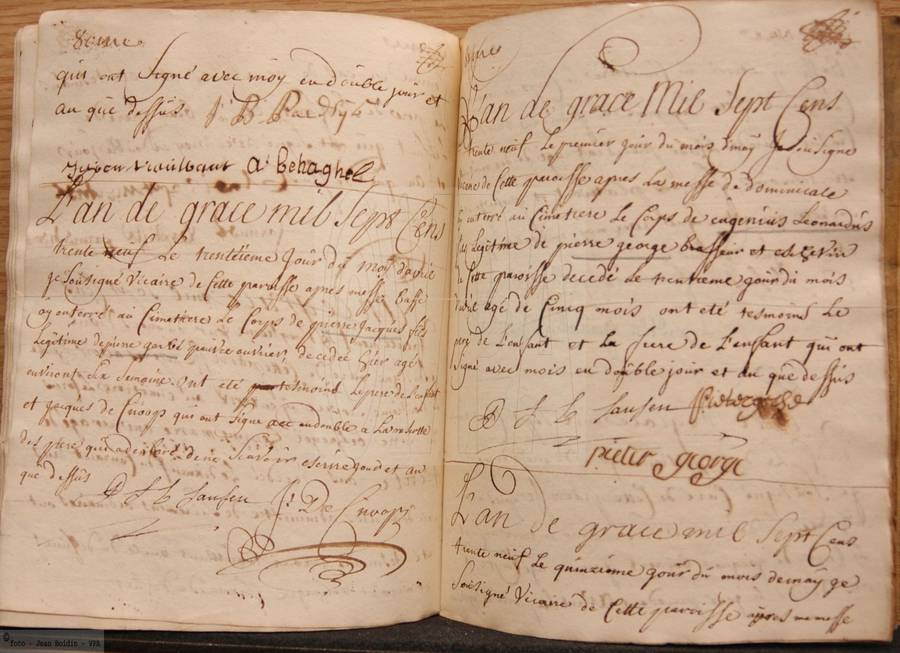 8eme
qui ont Signé avec moy en double jour et
an que dessus
a behaghel
L'an de grace mil Sept Cens
trente neuf Le trentieme Jour du moy d'avril
je Sousigné Vicaire de Cette paroisse apres messe basse
ay enterré au Cimetiere Le Corps de pierre Jacques fils
Legitime de pierre ouvrier decedé hier agé
environ La Semaine ont été tesmoins Le pere de L'enfant
et jacques de Cnoop qui ont Signé avec en double a La reserve
des pere qui a declaré de ne Scavoir escrire jour et an
que dessus
J: De Cnoop
L'an de grace Mil Sept Cens
trente neuf Le premier jour du mois de may Je Soussigné
Vicaire de Cette paroisse apres La messe de dominicale
ay enterré au Cimetiere Le Corps de eugenius Leonardus
fils Legitime de pierre george brasseur et
de Cette paroisse decedé Le trentieme jour du mois
d'avril agé de Cinq mois ont été tesmoins Le
pere de L'enfant et La de L'enfant qui ont
Signé avec mois en double jour et an que dessus
pieter george
L'an de grace mil Sept Cens
trente neuf Le quinzieme jour du mois de may ge
Soussigné Vicaire de Cette paroisse apres messe
© foto - Jean Boidin - VVA